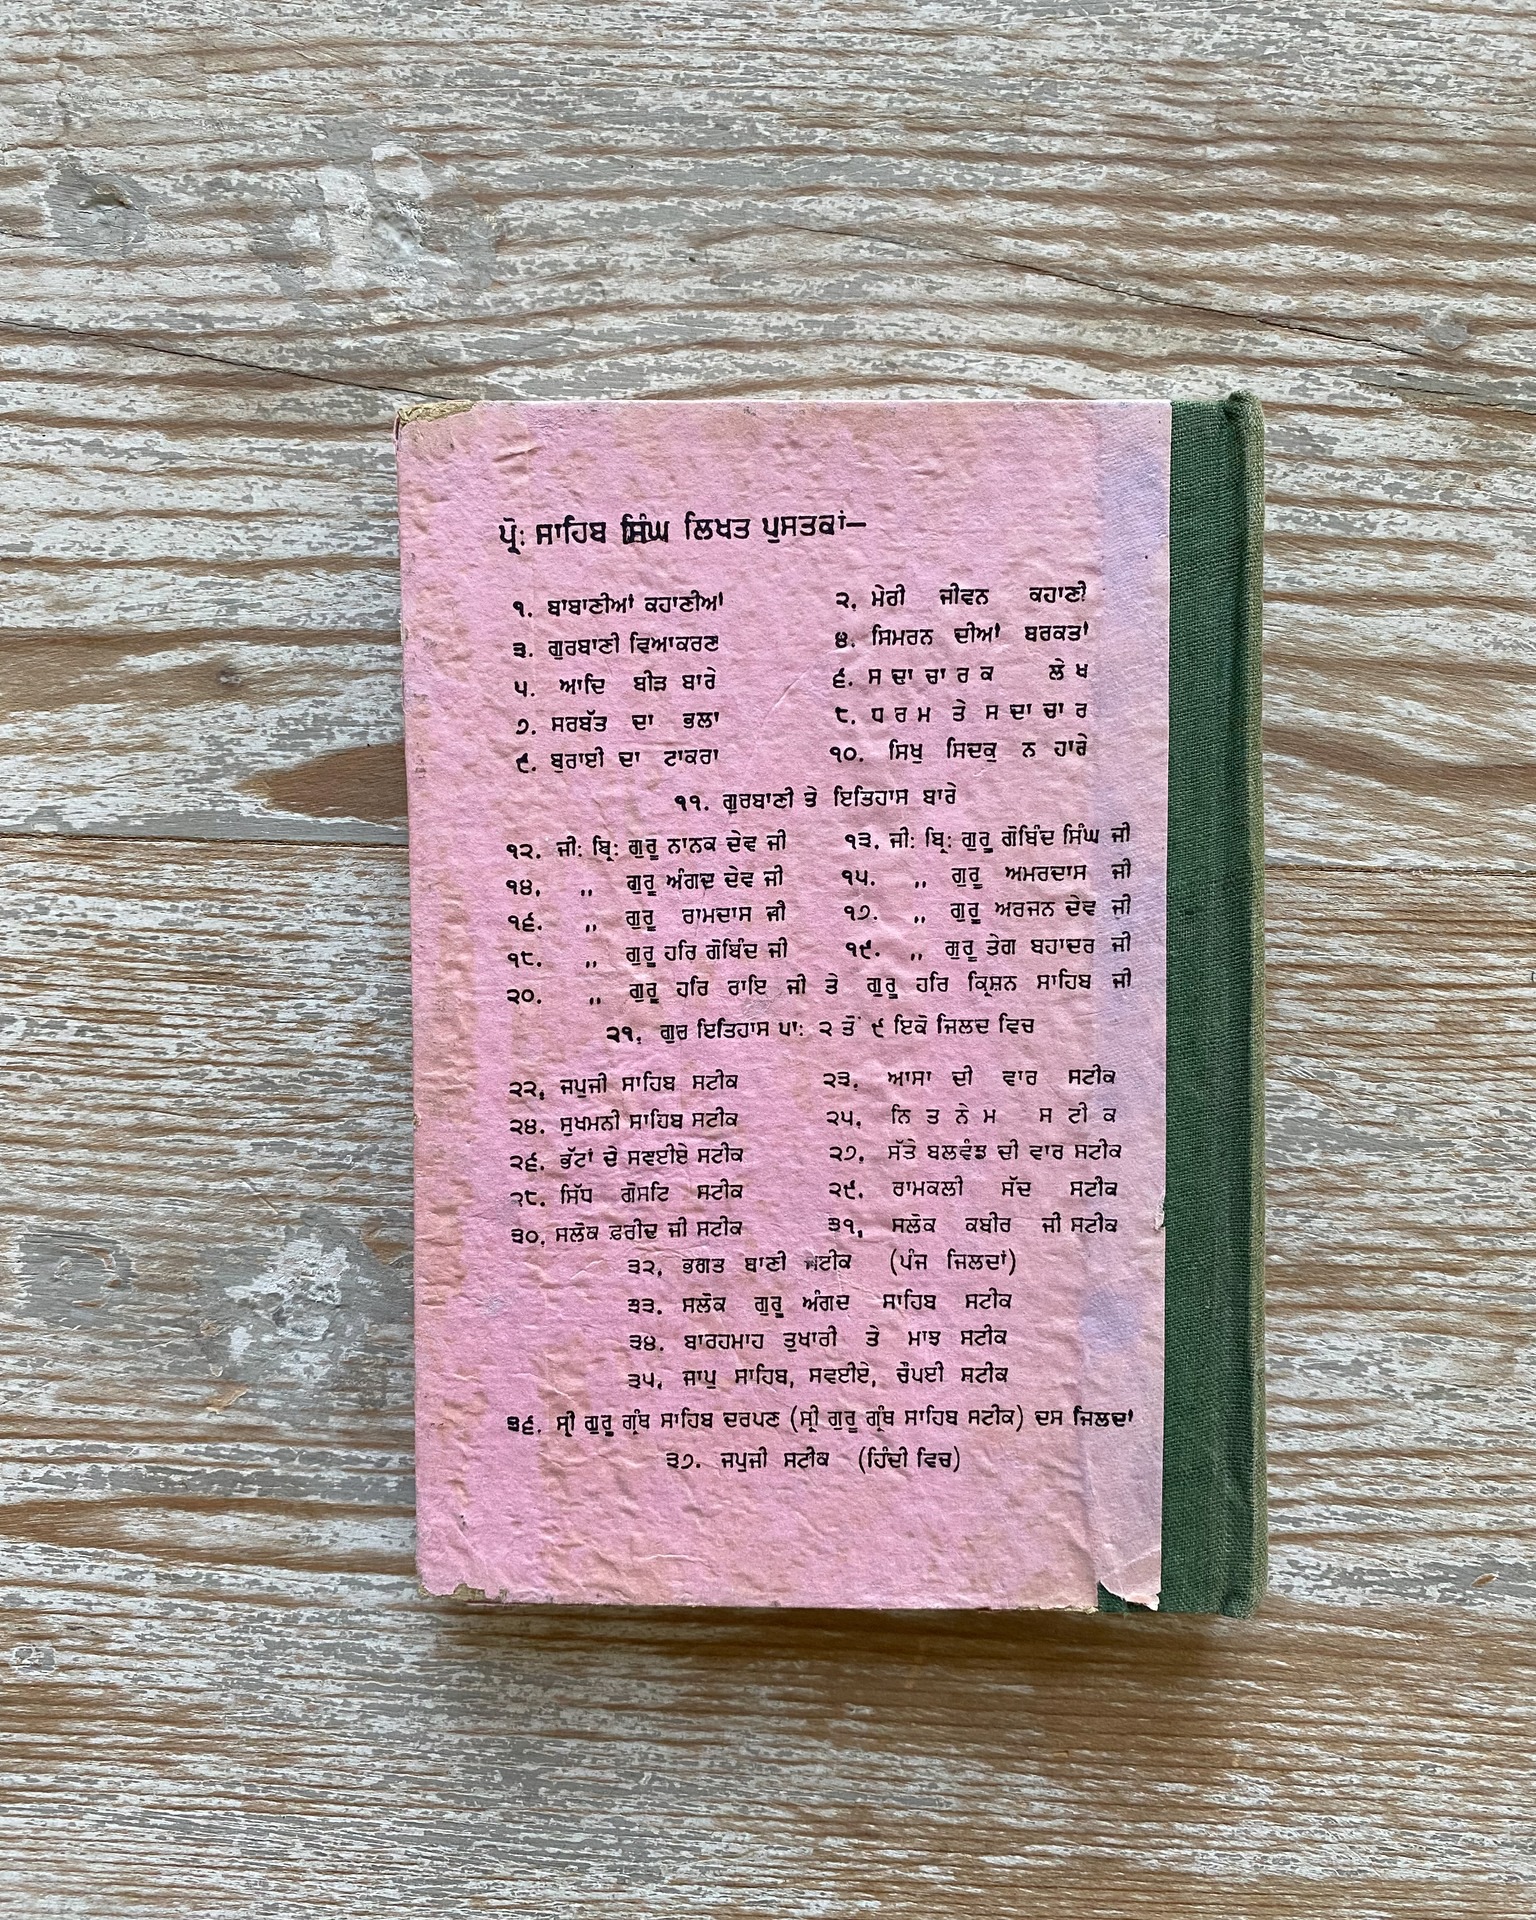 ਪ੍ਰੋ: ਸਾਹਿਬ ਸਿੰਘ ਲਿਖਤ ਪੁਸਤਕਾਂ—
੧. ਬਾਬਾਣੀਆਂ ਕਹਾਣੀਆਂ ੨. ਮੇਰੀ ਜੀਵਨ ਕਹਾਣੀ
੩. ਗੁਰਬਾਣੀ ਵਿਆਕਰਣ ੪. ਸਿਮਰਨ ਦੀਆਂ ਬਰਕਤਾਂ
੫. ਆਦਿ ਬੀੜ ਬਾਰੇ ੬. ਸਦਾਚਾਰਕ ਲੇਖ
੭. ਸਰਬੱਤ ਦਾ ਭਲਾ ੮. ਧਰਮ ਤੇ ਸਦਾਚਾਰ
੯. ਬੁਰਾਈ ਦਾ ਟਾਕਰਾ ੧੦. ਸਿਖੁ ਸਿਦਕੁ ਨ ਹਾਰੇ
੧੧. ਗੁਰਬਾਣੀ ਤੇ ਇਤਿਹਾਸ ਬਾਰੇ
੧੨. ਜੀ: ਬ੍ਰਿ: ਗੁਰੂ ਨਾਨਕ ਦੇਵ ਜੀ ੧੩. ਜੀ: ਬ੍ਰਿ: ਗੁਰੂ ਗੋਬਿੰਦ ਸਿੰਘ ਜੀ
੧੪. ,, ਗੁਰੂ ਅੰਗਦ ਦੇਵ ਜੀ ੧੫. ,, ਗੁਰੂ ਅਮਰਦਾਸ ਜੀ
੧੬. ,, ਗੁਰੂ ਰਾਮਦਾਸ ਜੀ ੧੭. ,, ਗੁਰੂ ਅਰਜਨ ਦੇਵ ਜੀ
੧੮. ,, ਗੁਰੂ ਹਰਿ ਗੋਬਿੰਦ ਜੀ ੧੯. ,, ਗੁਰੂ ਤੇਗ ਬਹਾਦਰ ਜੀ
੨੦. ,, ਗੁਰੂ ਹਰਿ ਰਾਇ ਜੀ ਤੇ ਗੁਰੂ ਹਰਿ ਕ੍ਰਿਸ਼ਨ ਸਾਹਿਬ ਜੀ
੨੧. ਗੁਰ ਇਤਿਹਾਸ ਪਾ: ੨ ਤੋਂ ੯ ਇਕੋ ਜਿਲਦ ਵਿਚ
੨੨. ਜਪੁਜੀ ਸਾਹਿਬ ਸਟੀਕ ੨੩. ਆਸਾ ਦੀ ਵਾਰ ਸਟੀਕ
੨੪. ਸੁਖਮਨੀ ਸਾਹਿਬ ਸਟੀਕ ੨੫. ਨਿਤਨੇਮ ਸਟੀਕ
੨੬. ਭੱਟਾਂ ਦੇ ਸਵਈਏ ਸਟੀਕ ੨੭. ਸੱਤੇ ਬਲਵੰਡ ਦੀ ਵਾਰ ਸਟੀਕ
੨੮. ਸਿੱਧ ਗੋਸਟਿ ਸਟੀਕ ੨੯. ਰਾਮਕਲੀ ਸੱਦ ਸਟੀਕ
੩੦. ਸਲੋਕ ਫ਼ਰੀਦ ਜੀ ਸਟੀਕ ੩੧. ਸਲੋਕ ਕਬੀਰ ਜੀ ਸਟੀਕ
੩੨. ਭਗਤ ਬਾਣੀ ਸਟੀਕ (ਪੰਜ ਜਿਲਦਾਂ)
੩੩. ਸਲੋਕ ਗੁਰੂ ਅੰਗਦ ਸਾਹਿਬ ਸਟੀਕ
੩੪. ਬਾਰਹਮਾਹ ਤੁਖਾਰੀ ਤੇ ਮਾਝ ਸਟੀਕ
੩੫. ਜਾਪੁ ਸਾਹਿਬ, ਸਵਈਏ, ਚੌਪਈ ਸਟੀਕ
੩੬. ਸ੍ਰੀ ਗੁਰੂ ਗ੍ਰੰਥ ਸਾਹਿਬ ਦਰਪਣ (ਸ੍ਰੀ ਗੁਰੂ ਗ੍ਰੰਥ ਸਾਹਿਬ ਸਟੀਕ) ਦਸ ਜਿਲਦਾਂ
੩੭. ਜਪੁਜੀ ਸਟੀਕ (ਹਿੰਦੀ ਵਿਚ)